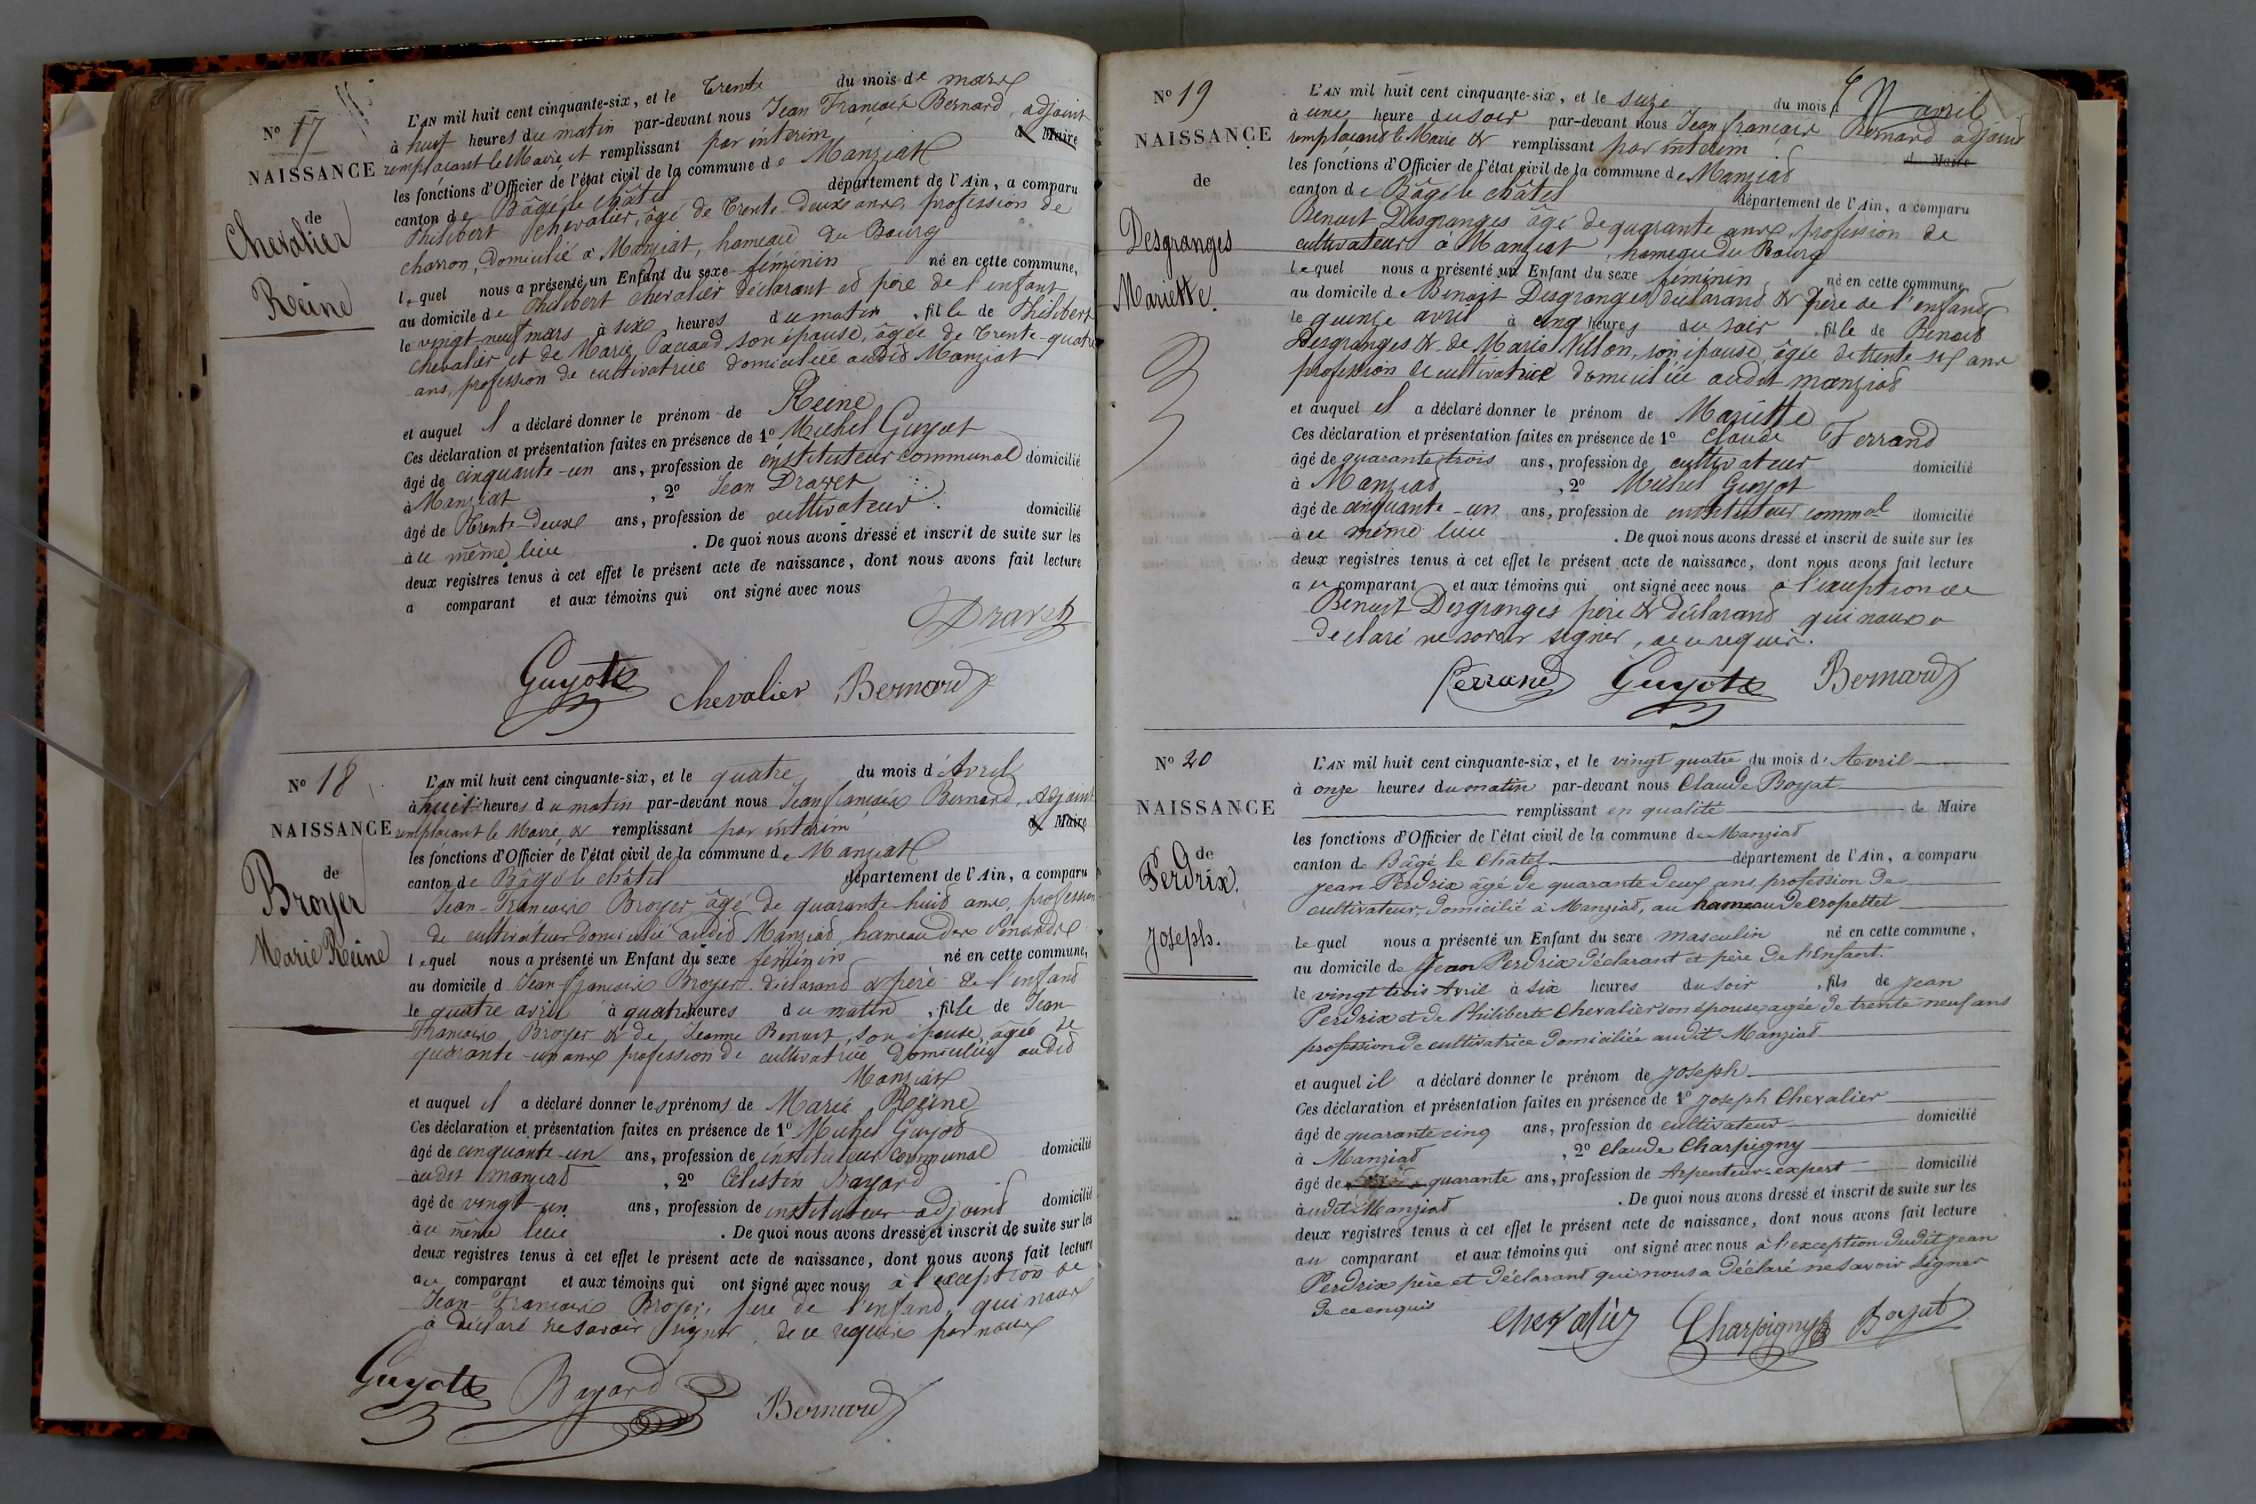 N° 17
NAISSANCE
de
Chevalier
Reine
L'AN mil huit cent cinquante-six, et le trente du mois de mars
à huit heures du matin par-devant nous Jean François Bernard, adjoint
remplaçant le Maire et remplissant par interim d Maire
les fonctions d'Officier de l'état civil de la commune de Manziat
canton de Bâgé le châtel département de l'Ain, a comparu
Philibert Chevalier, âgé de trente-deux ans, profession de
charron, domicilié à Manziat, hameau du Bourg
lequel nous a présenté un Enfant du sexe féminin né en cette commune,
au domicile de Philibert Chevalier déclarant et père de l'enfant
le vingt-neuf mars à six heures du matin, fille de Philibert
Chevalier et de Marie Pacaud son épouse, âgée de trente-quatre
ans, profession de cultivatrice domiciliée audit Manziat
et auquel il a déclaré donner le prénom de Reine
Ces déclaration et présentation faites en présence de 1° Michel Guyot
âgé de cinquante-un ans, profession de instituteur communal domicilié
à Manziat, 2° Jean Dravet
âgé de trente-deux ans, profession de cultivateur domicilié
à ce même lieu. De quoi nous avons dressé et inscrit de suite sur les
deux registres tenus à cet effet le présent acte de naissance, dont nous avons fait lecture
a comparant et aux témoins qui ont signé avec nous
Dravet
Guyot Chevalier Bernard
N° 18
NAISSANCE
de
Broyer
Marie Reine
L'AN mil huit cent cinquante-six, et le quatre du mois d'Avril
à huit heures du matin par-devant nous Jean françois Bernard, Adjoint
remplaçant le Maire, & remplissant par interim d Maire
les fonctions d'Officier de l'état civil de la commune de Manziat
canton de Bâgé le châtel département de l'Ain, a comparu
Jean-François Broyer âgé de quarante-huit ans, profession
de cultivateur domicilié audit Manziat, hameau des
lequel nous a présenté un Enfant du sexe féminin né en cette commune,
au domicile d Jean françois Broyer déclarant & père de l'enfant
le quatre avril à quatre heures du matin, fille de Jean-
François Broyer & de Jeanne Benoit, son épouse, âgée de
quarante-un ans profession de cultivatrice, domiciliée audit
Manziat
et auquel il a déclaré donner les prénoms de Marie Reine
Ces déclaration et présentation faites en présence de 1° Michel Guyot
âgé de cinquante-un ans, profession de instituteur communal domicilié
audit Manziat, 2° Célestin Bayard
âgé de vingt-un ans, profession de instituteur-adjoint domicilié
à ce même lieu. De quoi nous avons dressé et inscrit de suite sur les
deux registres tenus à cet effet le présent acte de naissance, dont nous avons fait lecture
au comparant et aux témoins qui ont signé avec nous, à l'exception de
Jean-François Broyer, père de l'enfant, qui nous
a déclaré ne savoir signer, de ce requis par nous
Guyot Bayard Bernard
N° 19
NAISSANCE
de
Desgranges
Mariette.
L'AN mil huit cent cinquante-six, et le seize du mois d avril
à une heure du soir par-devant nous Jean françois Bernard adjoint
remplaçant le Maire & remplissant par interim d Maire
les fonctions d'Officier de l'état civil de la commune de Manziat
canton de Bâgé le châtel département de l'Ain, a comparu
Benoit Desgranges âgé de quarante ans, profession de
cultivateur à Manziat, hameau du Bourg
lequel nous a présenté un Enfant du sexe féminin né en cette commune,
au domicile de Benoit Desgranges, déclarant & père de l'enfant
le quinze avril à cinq heures du soir, fille de Benoit
Desgranges & de Marie Villon, son épouse, âgée de trente six ans
profession de cultivatrice domiciliée audit manziat
et auquel il a déclaré donner le prénom de Mariette
Ces déclaration et présentation faites en présence de 1° Claude Ferrand
âgé de quarante trois ans, profession de cultivateur domicilié
à Manziat, 2° Michel Guyot
âgé de cinquante-un ans, profession de instituteur commal domicilié
à ce même lieu. De quoi nous avons dressé et inscrit de suite sur les
deux registres tenus à cet effet le présent acte de naissance, dont nous avons fait lecture
a ce comparant et aux témoins qui ont signé avec nous à l'exception de
Benoit Desgranges père & déclarant qui nous a
déclaré ne savoir signer, de ce requis.
Ferrand Guyot Bernard
N° 20
NAISSANCE
de
Perdrix.
Joseph.
L'AN mil huit cent cinquante-six, et le vingt quatre du mois d'Avril
à onze heures du matin par-devant nous Claude Boyat
remplissant en qualité de Maire
les fonctions d'Officier de l'état civil de la commune de Manziat
canton de Bâgé le Châtel département de l'Ain, a comparu
Jean Perdrix âgé de quarante deux ans profession de
cultivateur, domicilié à Manziat, au hameau de cropettet
lequel nous a présenté un Enfant du sexe masculin né en cette commune,
au domicile de Jean Perdrix déclarant et père de l'Enfant.
le vingt trois Avril à six heures du soir, fils de Jean
Perdrix et de Philiberte Chevalier son épouse, agée de trente neuf ans
profession de cultivatrice domiciliée audit Manziat
et auquel il a déclaré donner le prénom de Joseph
Ces déclaration et présentation faites en présence de 1° Joseph Chevalier
âgé de quarante cinq ans, profession de cultivateur domicilié
à Manziat, 2° Claude Charpigny
âgé de quarante ans, profession de Arpenteur-expert domicilié
audit Manziat. De quoi nous avons dressé et inscrit de suite sur les
deux registres tenus à cet effet le présent acte de naissance, dont nous avons fait lecture
au comparant et aux témoins qui ont signé avec nous à l'exception dudit Jean
Perdrix père et déclarant qui nous a déclaré ne savoir signer
de ce enquis
Chevalier Charpigny Boyat